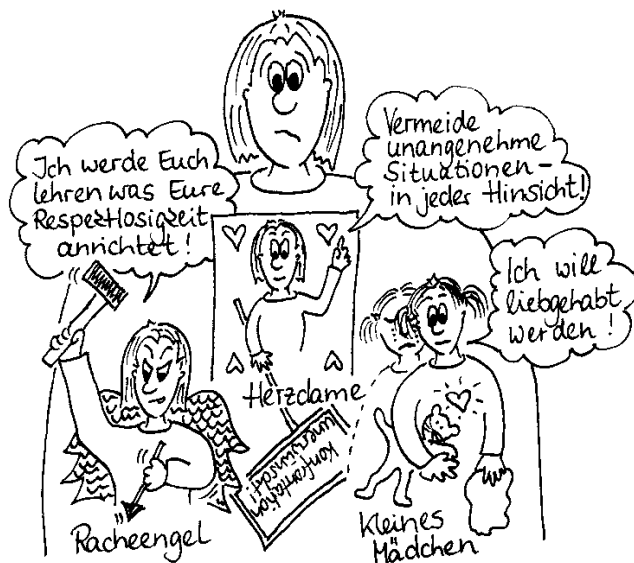 Ich werde Euch
lehren was Eure
Respektlosigkeit
anrichtet!
Vermeide
unangenehme
Situationen -
in jeder Hinsicht!
Ich will
liebgehabt
werden!
Herzdame
Konfrontation
unerwünscht!
Racheengel
Kleines
Mädchen